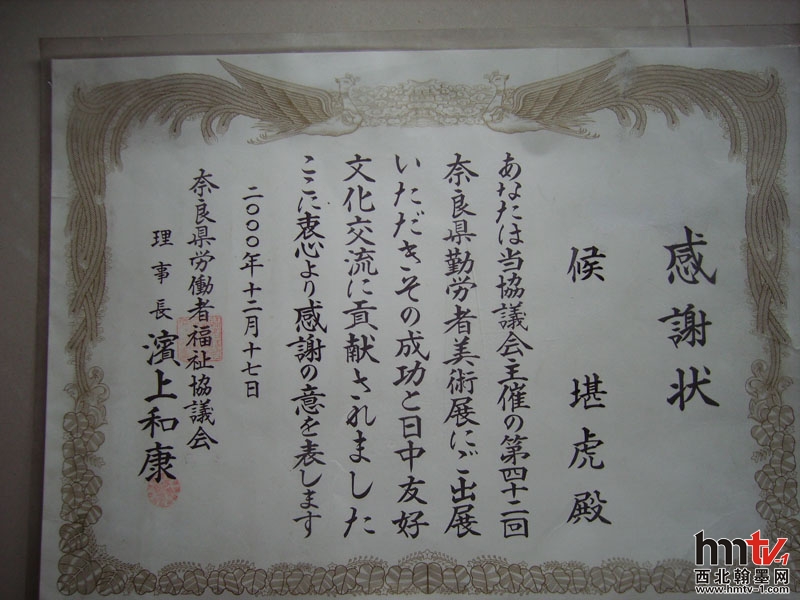 感謝状
候堪虎殿
あなたは当協議会主催の第四十二回
奈良県勤労者美術展にご出展
いただきその成功と日中友好
文化交流に貢献されました
ここに衷心より感謝の意を表します
二〇〇〇年十二月十七日
奈良県労働者福祉協議会
理事長 濱上和康
hmtv-1
西北翰墨网
www.hmtv-1.com